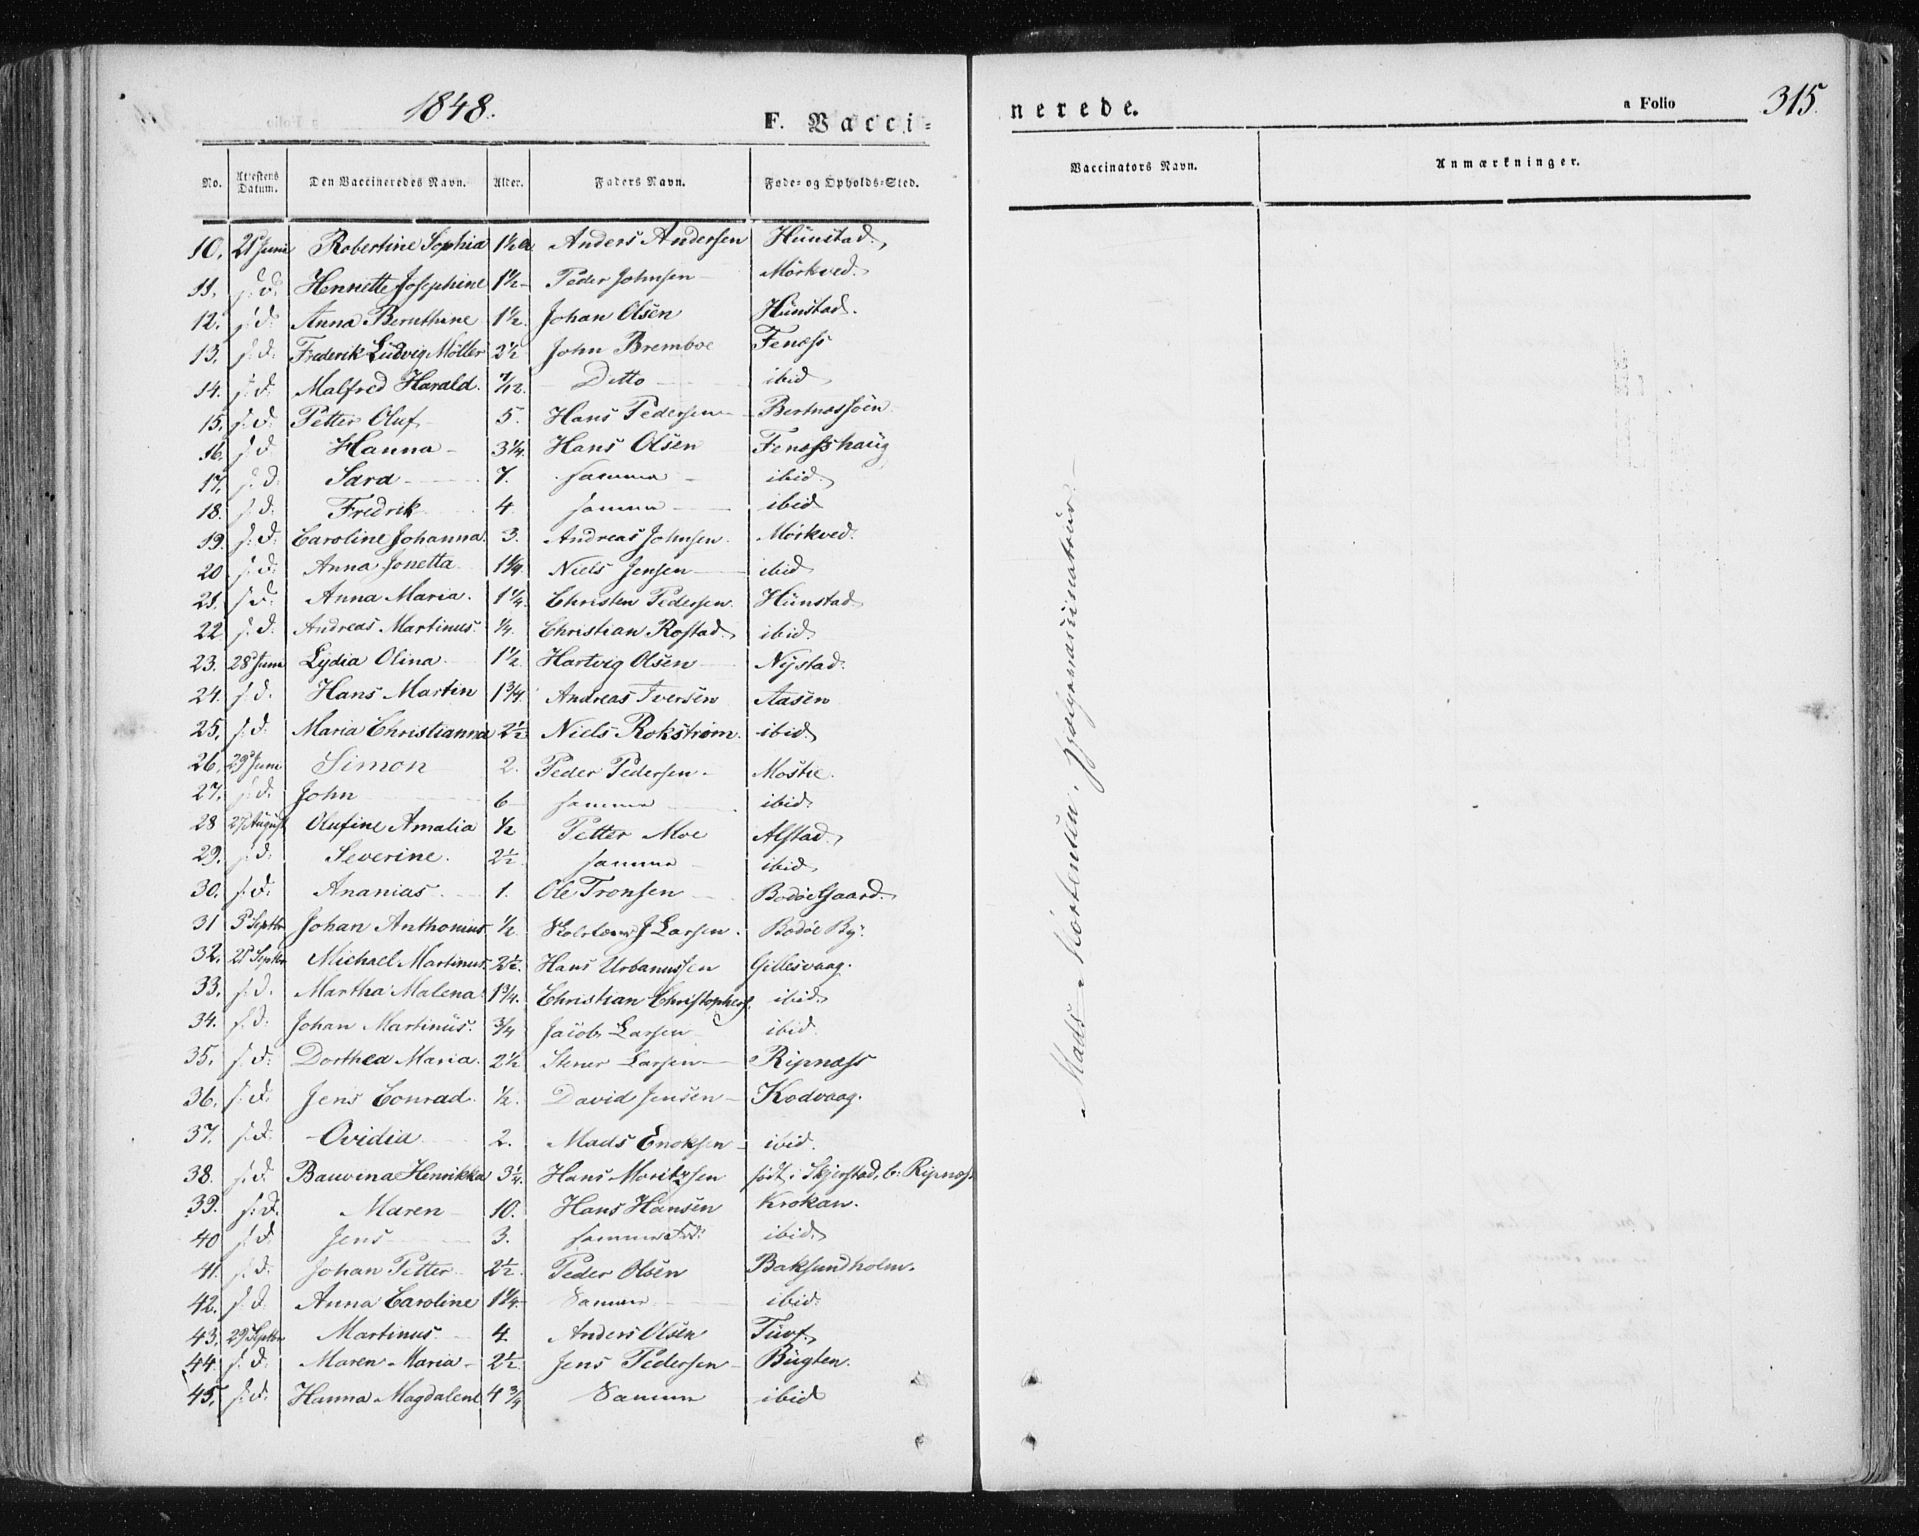 1848.
F. Vacci-
nerede.
a Folio
315.
No. Attestens Datum. Den Vaccineredes Navn. Alder. Faders Navn. Føde- og Opholds-Sted.
Vaccinators Navn. Anmærkninger.
10. 21 Juni Robertine Sophia 1½ a Anders Andersen Hunstad.
11. s. d. Hennette Josephine 1½ Peder Johnsen Mörkved.
12. s. d. Anna Bernthine 1½ Johan Olsen Hunstad.
13. s. d. Frederik Ludvig Möller 2½ John Bremboe Fenæss
14. s. d. Malfred Harald. 7/12. Ditto ibid
15. s. d. Petter Oluf 5. Hans Pedersen Bertnæssöen
16. s d. Hanna 3¼ Hans Olsen Fenæsshaug
17. s. d. Sara 7. samme ibid.
18. s. d. Fredrik 4 samme ibid
19. s. d. Caroline Johanna. 3. Andreas Johnsen. Mörkved.
20 s. d. Anna Jonetta 1¼ Niels Jensen ibid
21. s. d. Anna Maria. 1¼. Christen Pedersen. Hunstad
22 s. d. Andreas Martinus. ¼. Christian Rostad. ibid.
23. 28 Juni Lydia Olina 1½ Hartvig Olsen Nystad.
24. s. d. Hans Martin 1¾ Andreas Iversen Aasen
25. s. d. Maria Christianna 2½ Niels Rokstrøm. ibid.
26. 29 Juni Simon 2. Peder Pedersen. Mostie.
27. s. d. John 6 samme ibid.
28 27 August Olufine Amalia ½ Petter Moe Alstad.
29. s. d. Severine. 2½. samme ibid.
30. s. d. Ananias 1. Ole Tronsen Bodöe Gaard.
31 5 Septbr Johan Anthonius ½. J Larsen. Bodöe By.
32. 25 Septbr Michael Martinus. 2½. Hans Urbanussen Gillesvaag.
33. s. d. Martha Malena 1¾. Christian Christophers. ibid.
34. s. d. Johan Martinus. ¾ Jacob Larsen ibid.
35. s. d. Dorthea Maria. 2½ Stener Larsen Ripnæss
36. s. d. Jens Conrad. ½. David Jensen Kodvaag.
37. s. d. Ovidia 2. Mads Enoksen ibid.
38. s. d. Bauvina Henrikka 3¼. Hans Moritzsen födt i Skjerstad, b. Ripnæs.
39. s. d. Maren 10. Hans Hansen Krokan.
40 s. d. Jens 3. samme ibid.
41. s. d. Johan Petter 2½. Peder Olsen Baksundholm.
42. s. d. Anna Caroline 1¼ Samme ibid.
43. 29 Septbr Martinus 4. Anders Olsen Tuv.
44. s. d. Maren Maria 2½. Jens Pedersen Bugten.
45. s. d. Hanna Magdalene 4¾ Samme ibid
Mads Mortensen,